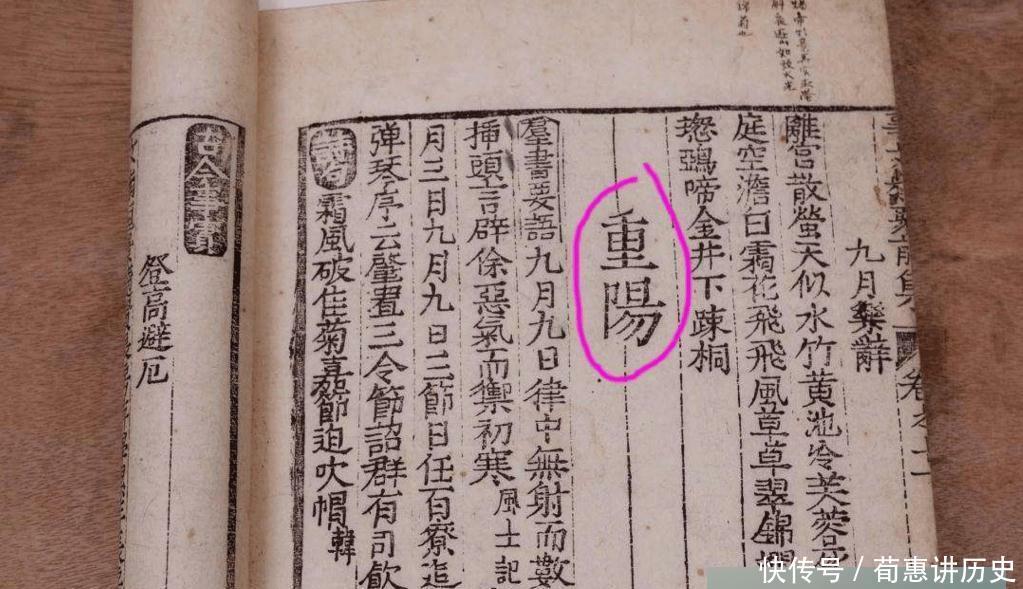 九月樂辭
離宮散螢天似水竹黃池冷芙蓉
庭空澹白霜花飛飛風草草翠錦
璁鵶啼金井下疎桐
重陽
羣書要語九月九日律中無射而數
挿頭言辟除惡氣而禦初寒風土記
月三日九月九日三節日任百寮
弹琴序云肇晝三令節詔群有司飲
詩句霜風破佳菊嘉節迫吹帽韓
古今事實
登高避厄
快传号/荀惠讲历史